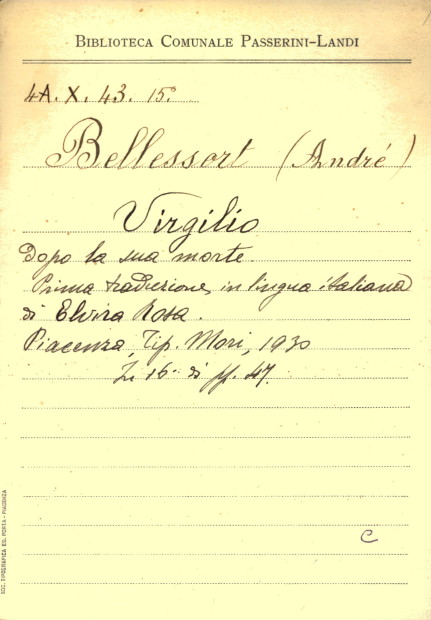 BIBLIOTECA COMUNALE PASSERINI-LANDI
4A. X. 43. 15°
Bellessort (André)
Virgilio
Dopo la sua morte.
Prima traduzione in lingua italiana
di Elvira Rosa.
Piacenza, Tip. Mori, 1930
In 16° di pp. 47.
C
SOC. TIPOGRAFICA ED. PORTA - PIACENZA